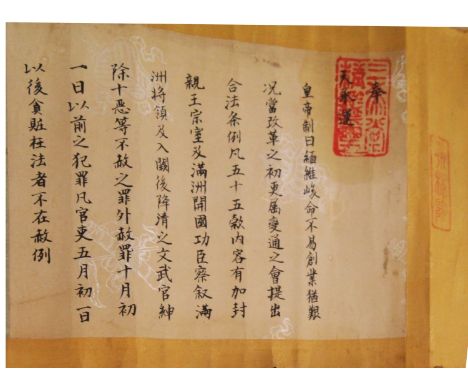 奉
天承運
皇帝制曰緬維峻命不易創業猶艱
況當改革之初更屬變通之會提出
合法條例凡五十五款内容有加封
親王宗室及滿洲開國功臣察敘滿
洲將領及入關後降清之文武官紳
除十惡等不赦之罪外赦罪十月初
一日以前之犯罪凡官吏五月初一日
以後貪賍枉法者不在赦例